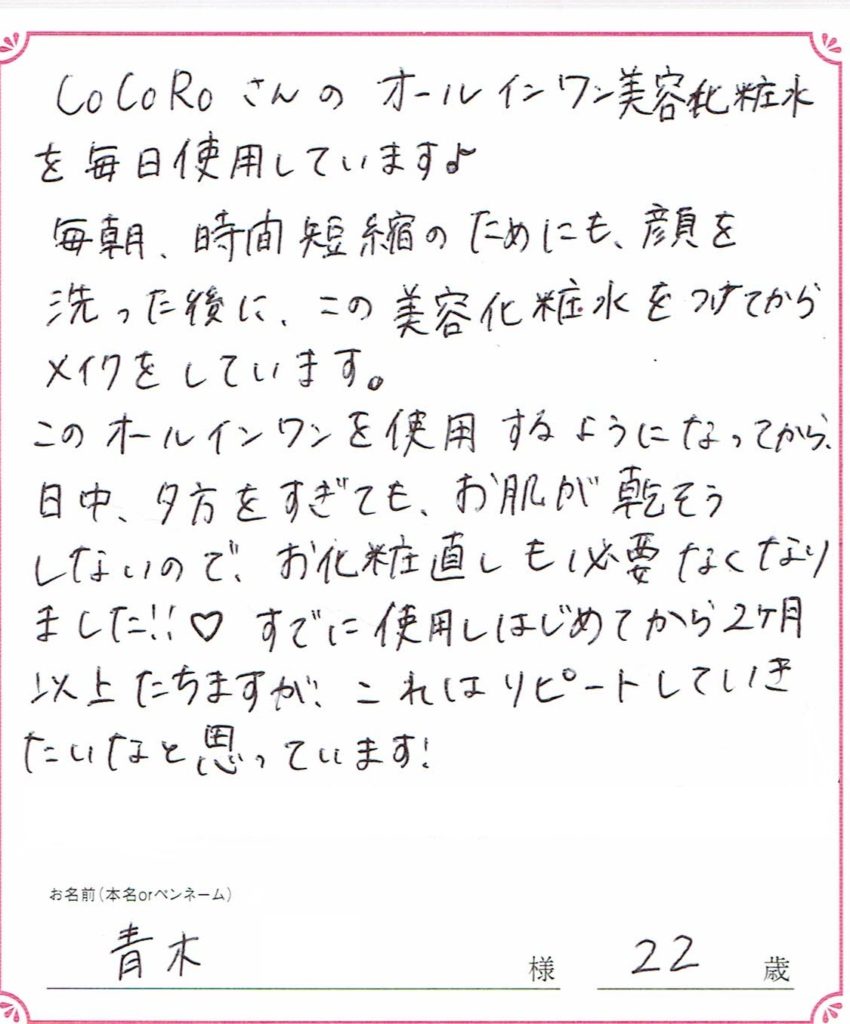 CoCoRoさんのオールインワン美容化粧水
を毎日使用しています♪
毎朝、時間短縮のためにも、顔を
洗った後に、この美容化粧水をつけてから
メイクをしています。
このオールインワンを使用するようになってから、
日中、夕方をすぎても、お肌が乾そう
しないので、お化粧直しも必要なくなり
ました!!♡ すでに使用しはじめてから2ヶ月
以上たちますが、これはリピートしていき
たいなと思っています!
お名前(本名orペンネーム)
青木 様 22 歳